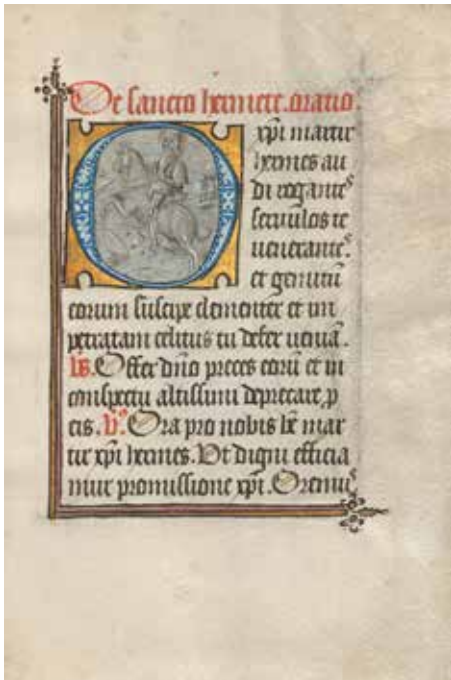 De sancto hermete. oratio.
O xp̄i martir
hermes au
di rogantes
seruulos te
uenerantes.
et gemitū
eorum suscipe clementer et im
petratam celitus tu defer ueniā.
Vs. Offer dn̄o preces eorū et in
conspectu altissimi deprecare p
eis. V̊. Ora pro nobis bē mar
tir xp̄i hermes. Vt digni efficia
mur promissione xp̄i. Oremus